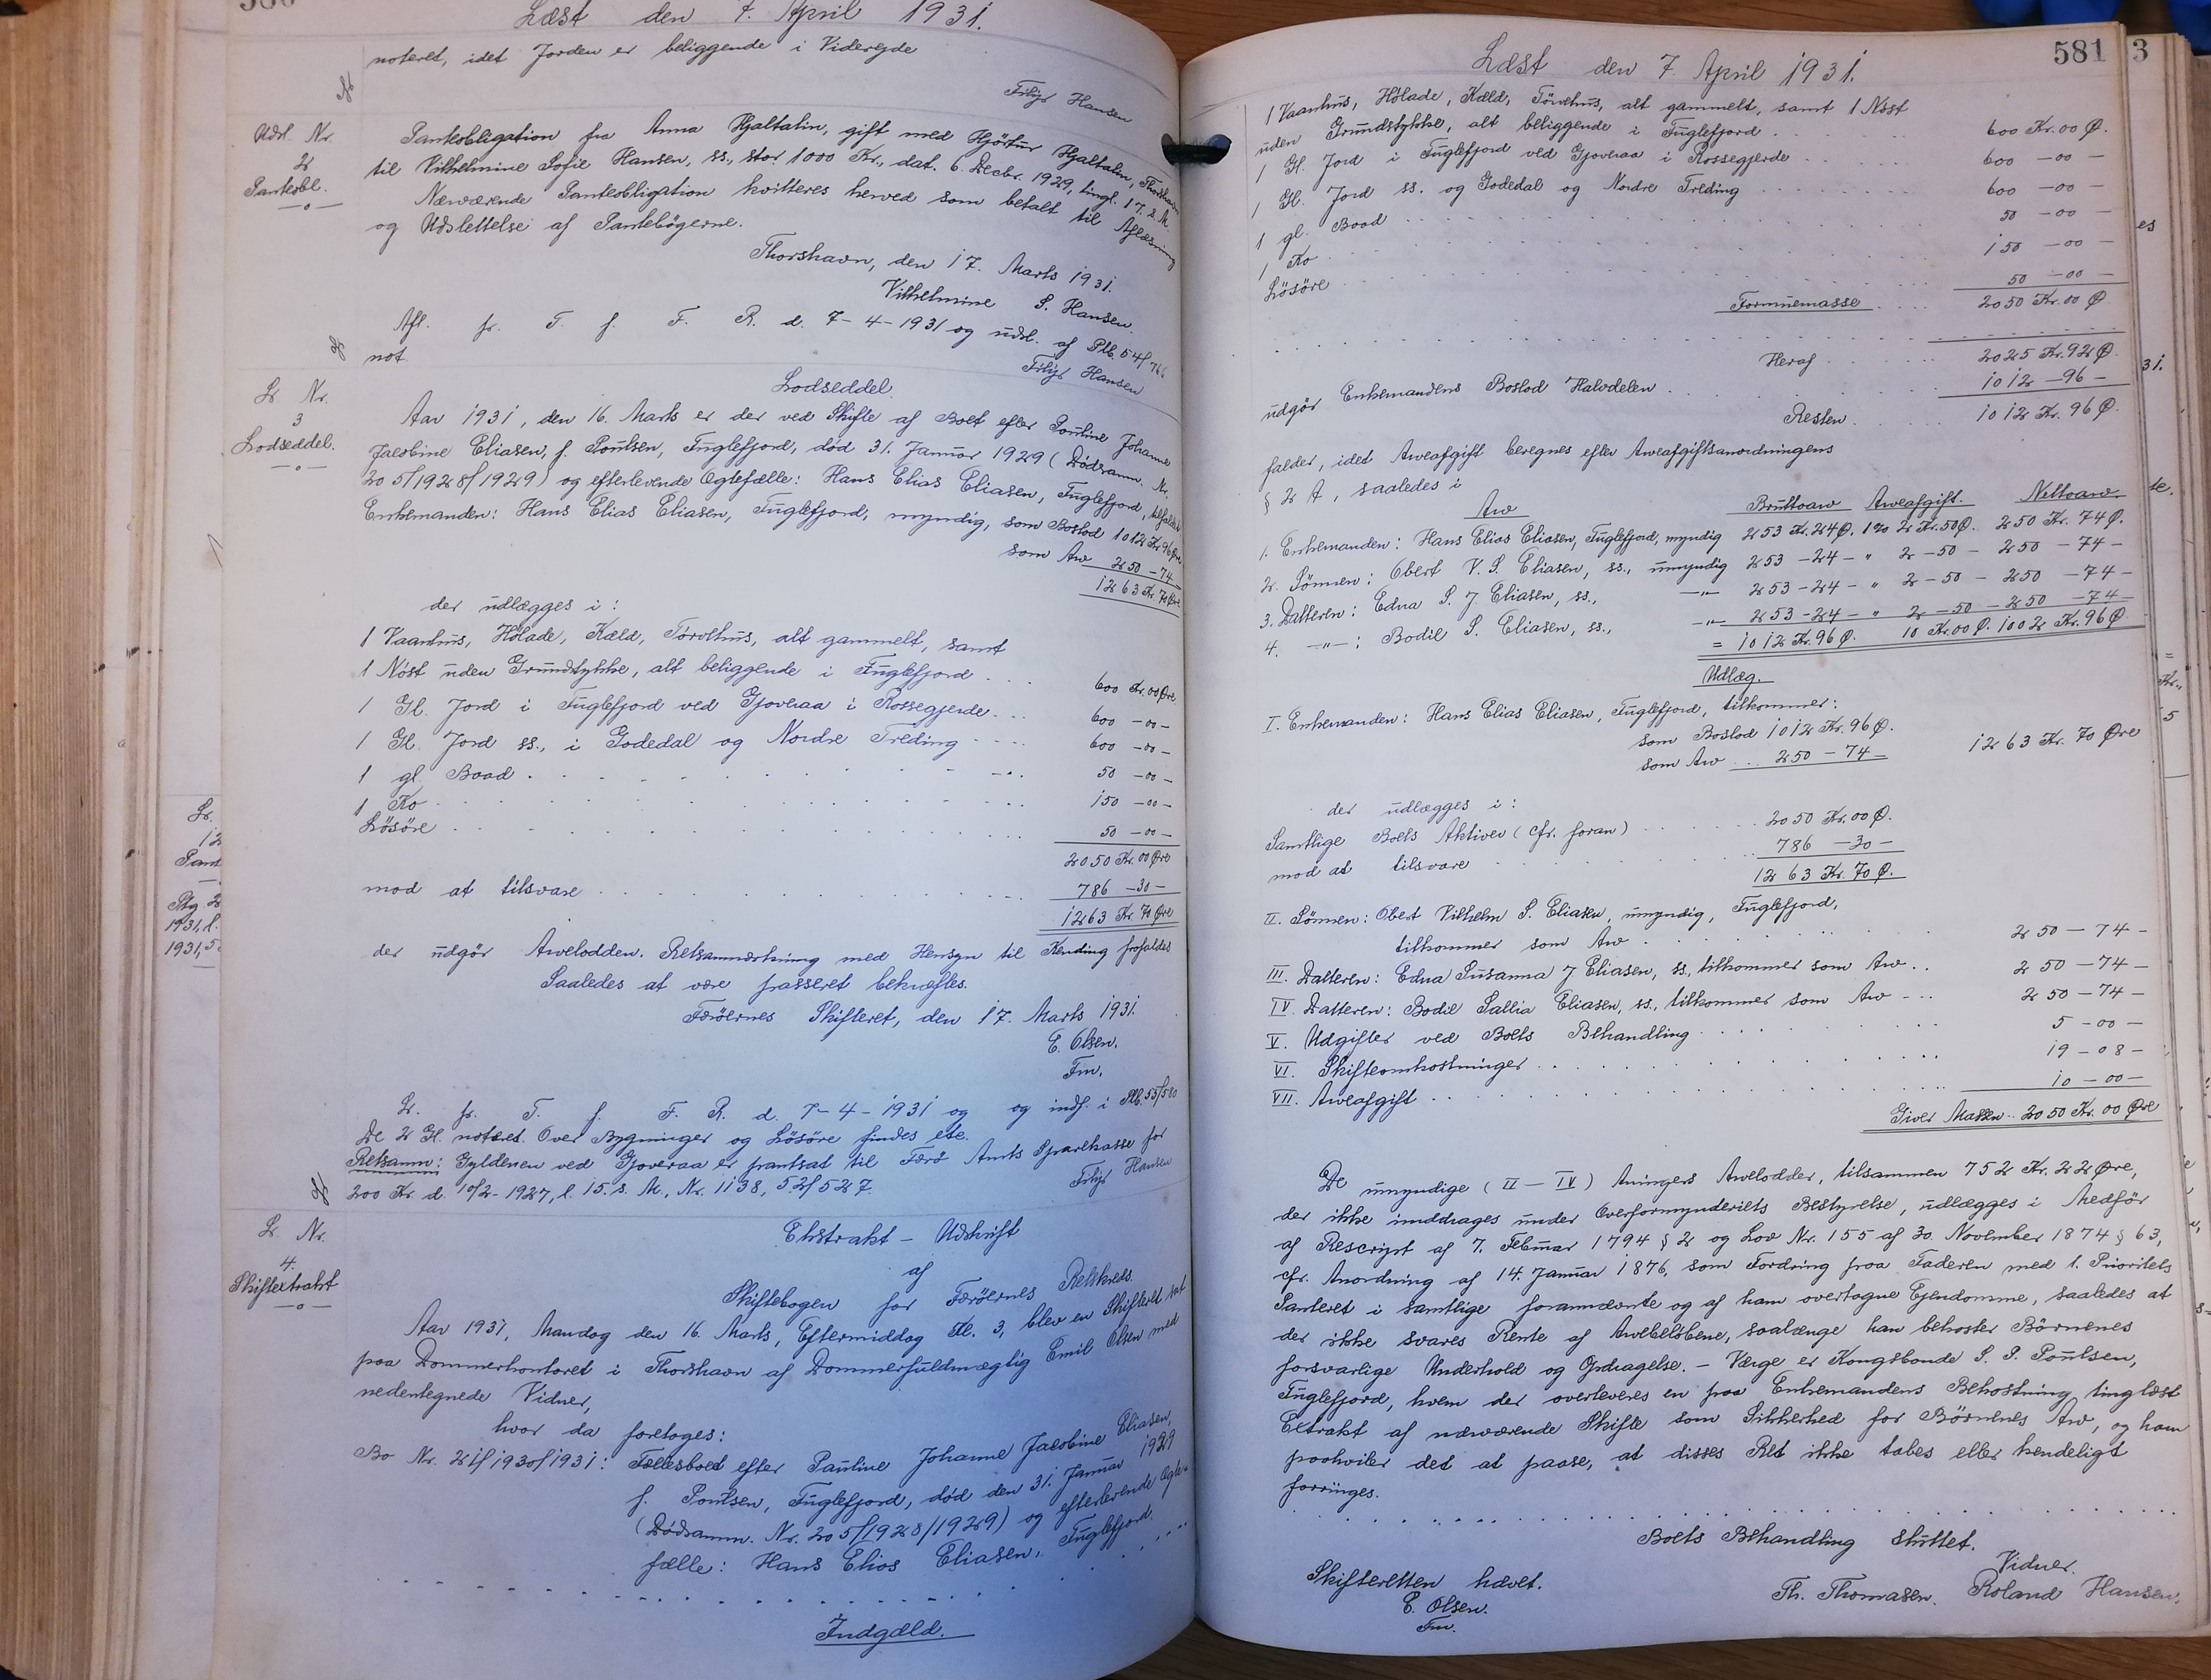 580
Læst den 7. April 1931.
noteret, idet Jorden er beliggende i Viderejde
Filip Hansen
Udsl. Nr.
2
Panteobl.
Panteobligation fra Anna Hjaltalin, gift med Hjörtur Hjaltalin, Thorshavn
til Vilhelmine Sofie Hansen, ss., stor 1000 Kr., dat. 6. Decbr. 1929, tingl. 17. s. M.
Nærværende Panteobligation kvitteres herved som betalt til Aflæsning
og Udslettelse af Pantebögerne.
Thorshavn, den 17. Marts 1931.
Vilhelmine S. Hansen.
Afl. fr. T. f. F. R. d. 7-4-1931 og udsl. af Ptb. 54/766
not.
Filip Hansen
L. Nr.
3
Lodseddel.
Lodseddel.
Aar 1931, den 16. Marts er der ved Skifte af Boet efter Pouline Johanne
Jacobine Eliasen, f. Poulsen, Fuglefjord, död 31. Januar 1929 (Dödsanm. Nr.
205/1928/1929) og efterlevende Ægtefælle: Hans Elias Eliasen, Fuglefjord, tilfaldet
Enkemanden: Hans Elias Eliasen, Fuglefjord, myndig, som Boslod 1012 Kr. 96 Øre
som Arv 250 - 74 -
1263 Kr. 70 Øre
der udlægges i:
1 Vaanhus, Hölade, Kæld, Törvehus, alt gammelt, samt
1 Nöst uden Grundstykke, alt beliggende i Fuglefjord . . . 600 Kr. 00 Øre
1 Gl. Jord i Fuglefjord ved Gjoveraa i Rossegjerde . . . 600 - 00 -
1 Gl. Jord ss., i Godedal og Nordre Treding . . . 600 - 00 -
1 gl. Baad . . . 50 - 00 -
1 Ko . . . 150 - 00 -
Lösöre . . . 50 - 00 -
2050 Kr. 00 Øre
mod at tilsvare . . . 786 - 30 -
1263 Kr. 70 Øre
der udgör Arvelodden. Retsanmærkning med Hensyn til Kending frafaldes
Saaledes at være passeret bekræftes.
Færöernes Skifteret, den 17. Marts 1931.
E. Olsen.
Fm.
L. fr. T. f. F. R. d. 7-4-1931 og og indf. i Ptb. 55/580
De 2 Gl. noteret. Over Bygninger og Lösöre findes ete.
Retsanm: Gyldenen ved Gjoveraa er pantsat til Færö Amts Sparekasse for
200 Kr. d. 10/2-1927, l. 15. s. M., Nr. 1138, 52/527.
Filip Hansen
L. Nr.
4.
Skifteextrakt
Ekstrakt - Udskrift
af
Skiftebogen for Færöernes Retskreds.
Aar 1931, Mandag den 16. Marts, Eftermiddag Kl. 3, blev en Skifteret sat
paa Dommerkontoret i Thorshavn af Dommerfuldmægtig Emil Olsen med
nedentegnede Vidner,
hvor da foretoges:
Bo Nr. 21/1930/1931: Fællesboet efter Pauline Johanne Jacobine Eliasen,
f. Poulsen, Fuglefjord, död den 31. Januar 1929
(Dödsanm. Nr. 205/1928/1929) og efterlevende Ægte-
fælle: Hans Elias Eliasen, Fuglefjord.
Indgæld.
581
Læst den 7. April 1931.
1 Vaanhus, Hölade, Kæld, Törvehus, alt gammelt, samt 1 Nöst
uden Grundstykke, alt beliggende i Fuglefjord . . . 600 Kr. 00 Ø.
1 Gl. Jord i Fuglefjord ved Gjoveraa i Rossegjerde . . . 600 - 00 -
1 Gl. Jord ss. og Godedal og Nordre Treding . . . 600 - 00 -
1 gl. Baad . . . 50 - 00 -
1 Ko . . . 150 - 00 -
Lösöre . . . 50 - 00 -
Formuemasse . . . 2050 Kr. 00 Ø.
Heraf . . . 2025 Kr. 92 Ø.
udgör Enkemandens Boslod Halvdelen . . . 1012 - 96 -
Resten . . . 1012 Kr. 96 Ø.
falder, idet Arveafgift beregnes efter Arveafgiftsanordningens
§ 2 A, saaledes i
Arv Bruttoarv Arveafgift. Nettoarv
1. Enkemanden: Hans Elias Eliasen, Fuglefjord, myndig 253 Kr. 24 Ø. 1% 2 Kr. 50 Ø. 250 Kr. 74 Ø.
2. Sönnen: Obert V. S. Eliasen, ss., umyndig 253 - 24 - " 2 - 50 - 250 - 74 -
3. Datteren: Edna S. J. Eliasen, ss., -"- 253 - 24 - " 2 - 50 - 250 - 74 -
4. -"-: Bodil S. Eliasen, ss., -"- 253 - 24 - " 2 - 50 - 250 - 74 -
= 1012 Kr. 96 Ø. 10 Kr. 00 Ø. 1002 Kr. 96 Ø.
Udlæg.
I. Enkemanden: Hans Elias Eliasen, Fuglefjord, tilkommer:
som Boslod 1012 Kr. 96 Ø.
som Arv . . . 250 - 74 - 1263 Kr. 70 Øre
der udlægges i:
Samtlige Boets Aktiver (cfr. foran) . . . 2050 Kr. 00 Ø.
mod at tilsvare . . . 786 - 30 -
1263 Kr. 70 Ø.
II. Sönnen: Obert Vilhelm S. Eliasen, umyndig, Fuglefjord,
tilkommer som Arv . . . 250 - 74 -
III. Datteren: Edna Susanna J. Eliasen, ss., tilkommer som Arv . . 250 - 74 -
IV. Datteren: Bodil Sallia Eliasen, ss., tilkommer som Arv . . . 250 - 74 -
V. Udgifter ved Boets Behandling . . . 5 - 00 -
VI. Skifteomkostninger . . . 19 - 08 -
VII. Arveafgift . . . 10 - 00 -
Giver Massen . . 2050 Kr. 00 Øre
De umyndige (II - IV) Arvingers Arvelodder, tilsammen 752 Kr. 22 Øre,
der ikke inddrages under Overformynderiets Bestyrelse, udlægges i Medför
af Rescript af 7. Februar 1794 § 2 og Lov Nr. 155 af 30. November 1874 § 63,
cfr. Anordning af 14. Januar 1876, som Fordring paa Faderen med 1. Prioritets
Panteret i samtlige forannævnte og af ham overtagne Ejendomme, saaledes at
der ikke svares Rente af Arvebelöbene, saalænge han bekoster Börnenes
forsvarlige Underhold og Opdragelse. - Værge er Kongsbonde S. P. Poulsen,
Fuglefjord, hvem der overleveres en paa Enkemandens Bekostning tinglæst
Extrakt af nærværende Skifte som Sikkerhed for Börnenes Arv, og ham
paahviler det at paase, at disses Ret ikke tabes eller kendeligt
forringes.
Boets Behandling sluttet.
Skifteretten hævet.
E. Olsen.
Fm.
Vidner.
Th. Thomasen. Roland Hansen.